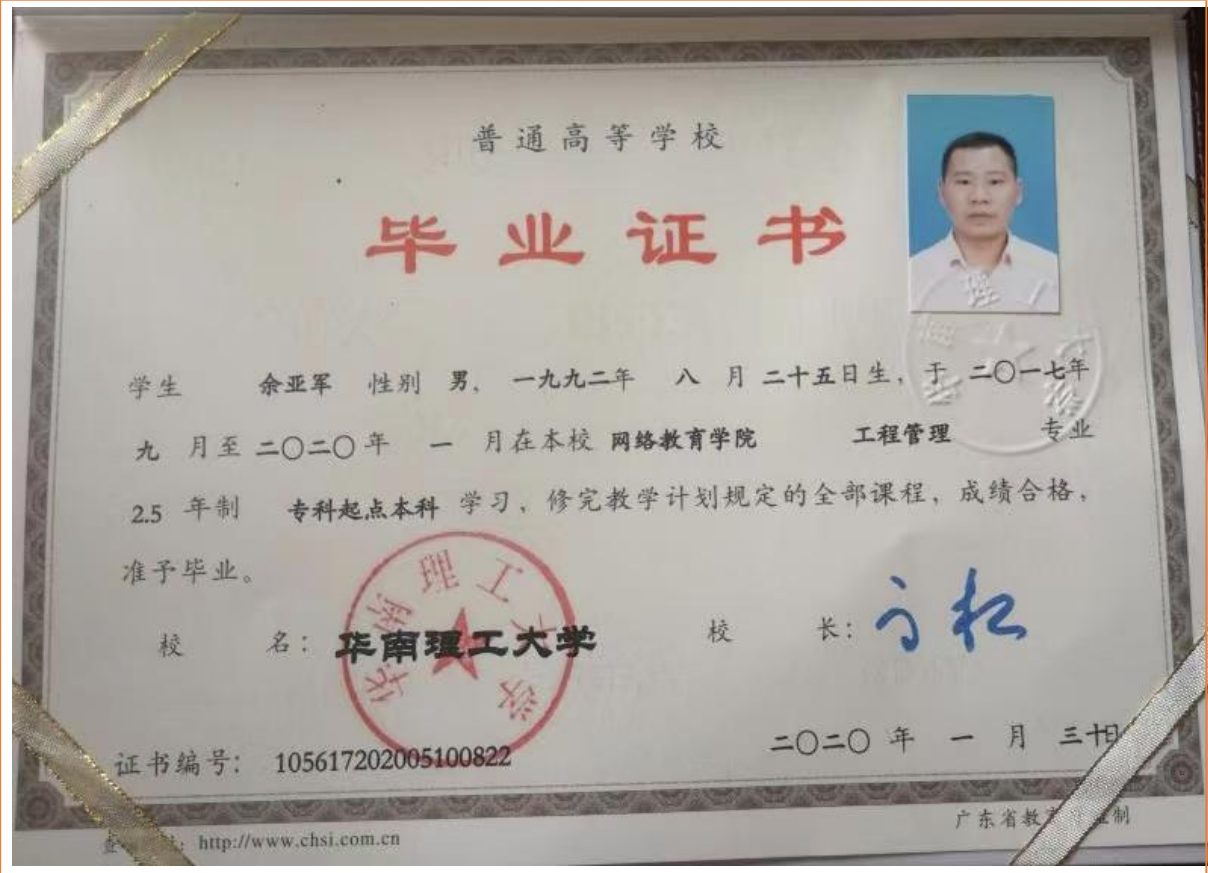 普通高等学校
毕业证书
学生 余亚军 性别 男, 一九九二年 八 月 二十五日生, 于 二〇一七年
九 月至 二〇二〇年 一 月在本校 网络教育学院 工程管理 专业
2.5 年制 专科起点本科 学习, 修完教学计划规定的全部课程, 成绩合格,
准予毕业。
华南理工大学
校 名: 华南理工大学 校 长:
二〇二〇 年 一 月 三十日
证书编号: 105617202005100822
广东省教 制
查 : http://www.chsi.com.cn